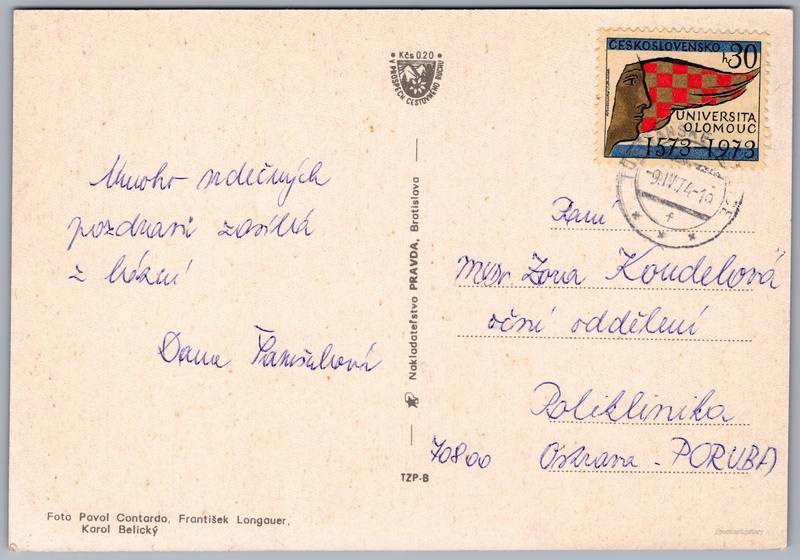 Kčs 0.20
V PROSPĚCH CESTOVNÉHO RUCHU
ČESKOSLOVENSKO
h 30
UNIVERSITA
OLOMOUC
1573 - 1973
-9.IV.74-
Mnoho srdečných
pozdravů zasílá
z lázní
Dana
Paní
MUDr. Zora Koudelová
oční oddělení
Poliklinika
70800 Ostrava - PORUBA
Nakladateľstvo PRAVDA, Bratislava
TZP-B
Foto Pavol Contardo, František Longauer,
Karol Belický